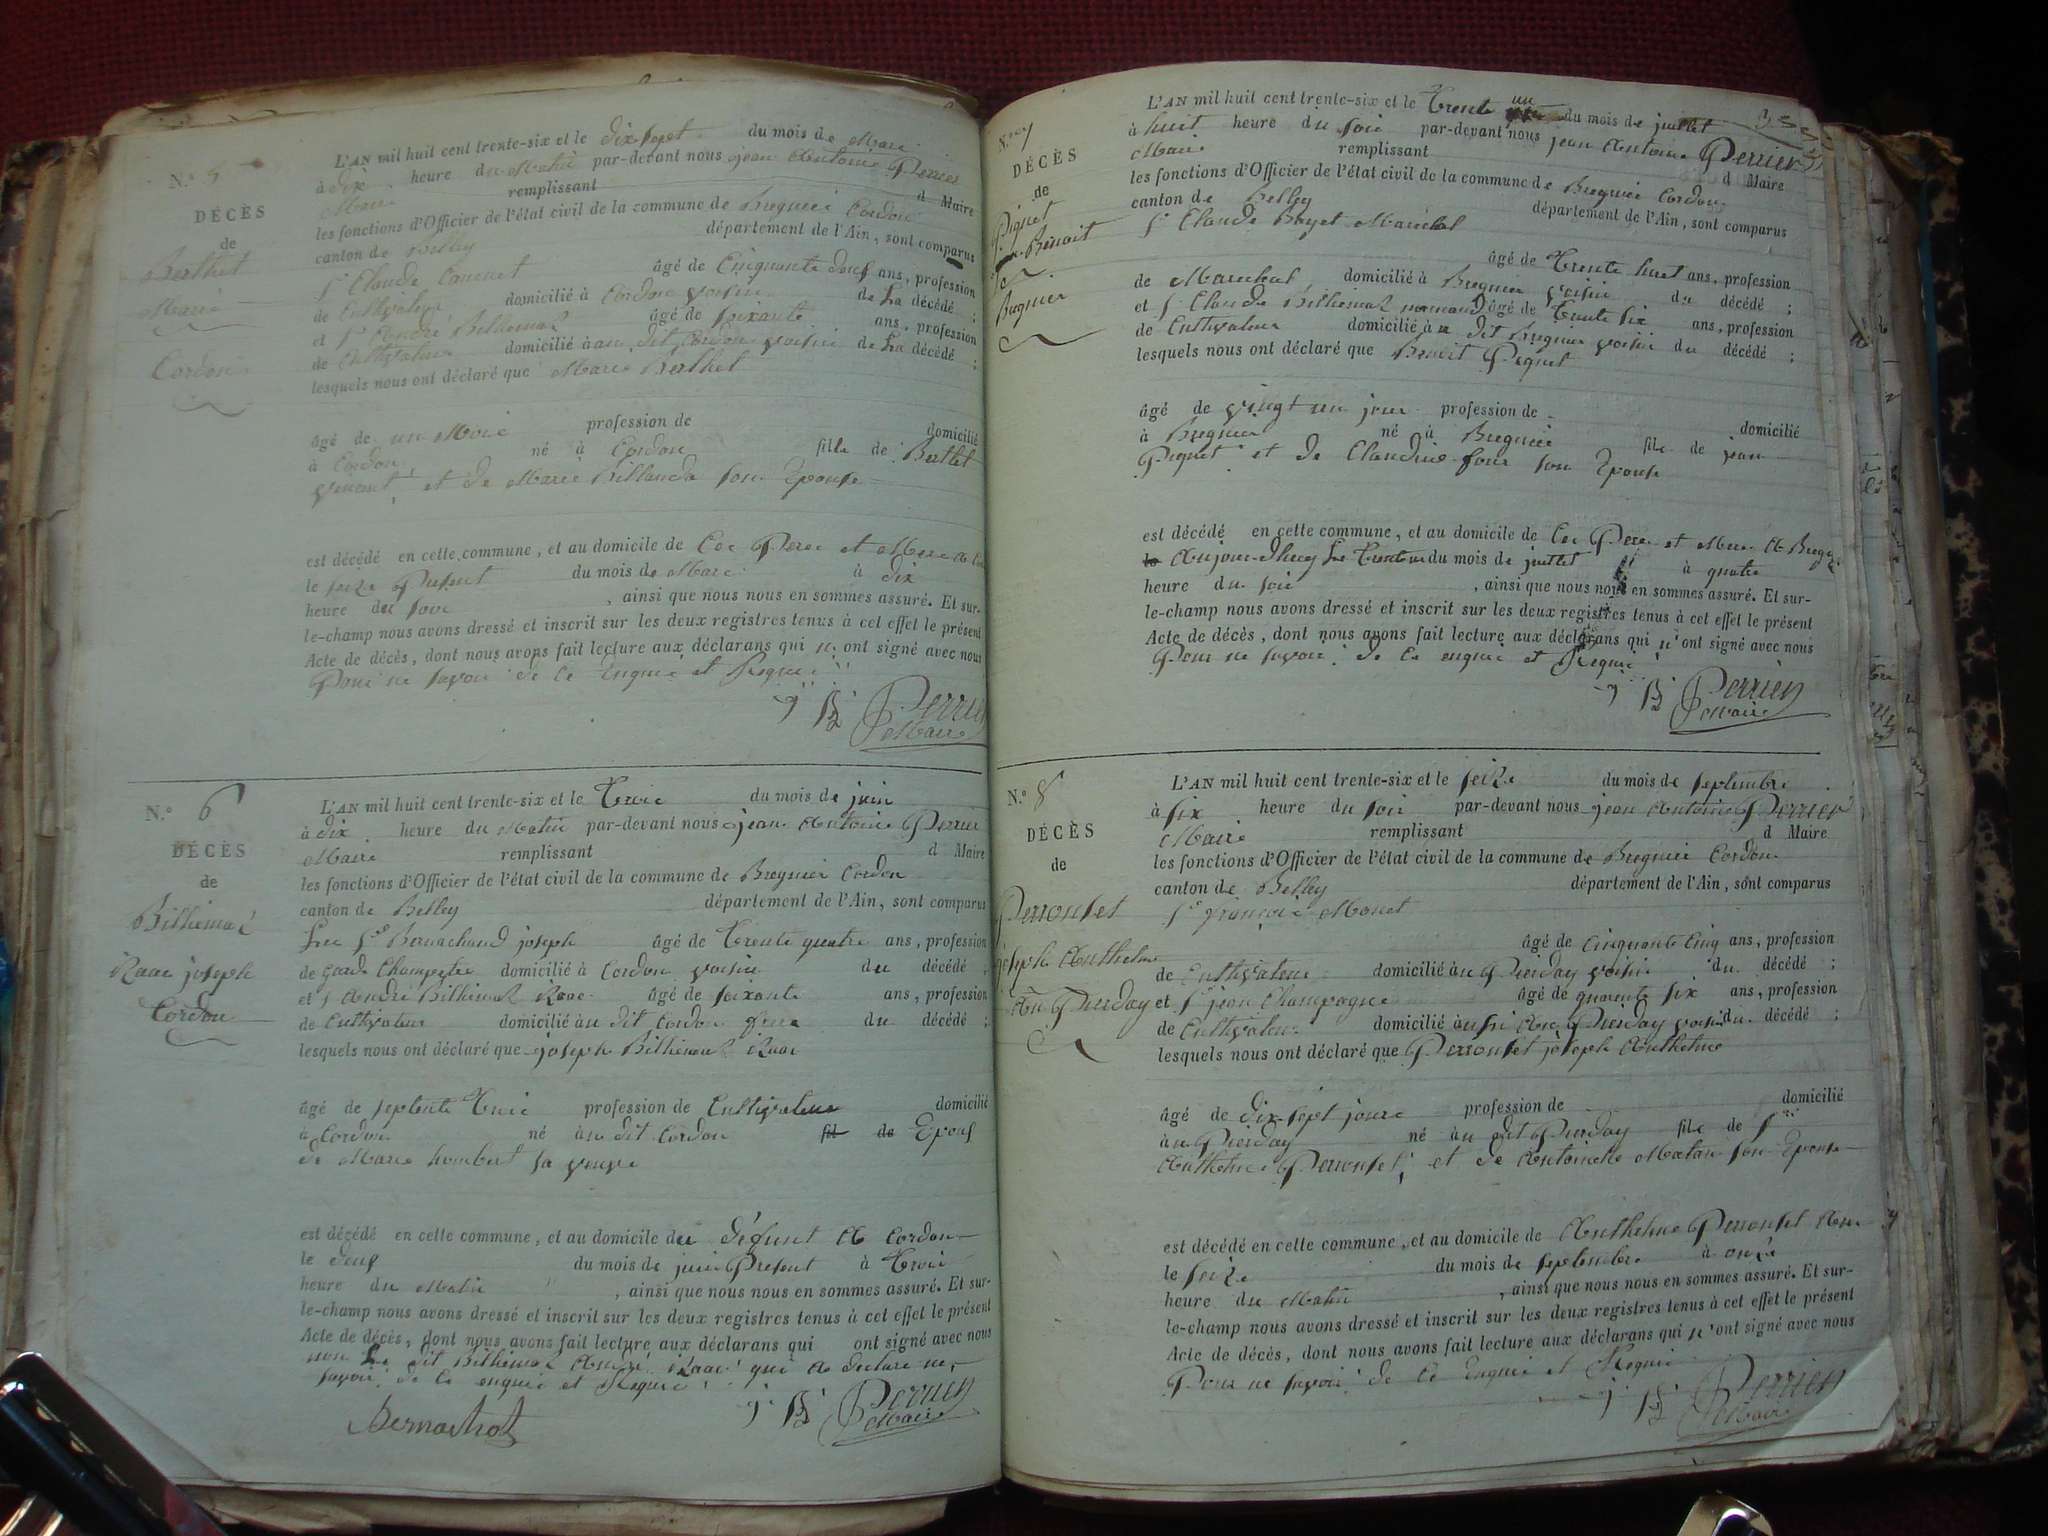 N.° 5
DÉCÈS
de
Berthet
Marie
Cordon
L'AN mil huit cent trente-six et le dix sept du mois de Mars
à dix heure du Matin par-devant nous jean Antoine Perrier
Maire remplissant d Maire
les fonctions d'Officier de l'état civil de la commune de Bregnier Cordon
canton de Belley département de l'Ain, sont comparus
s.r Claude âgé de Cinquante deux ans, profession
de Cultivateur domicilié à Cordon voisin de La décédé ;
et s.r André Billiemaz âgé de soixante ans, profession
de Cultivateur domicilié à au dit Cordon voisin de La décédé ;
lesquels nous ont déclaré que Marie Berthet
âgé de un Mois profession de domicilié
à Cordon né à Cordon fille de Berthet
vincent, et de Marie son Epouse
est décédé en cette commune, et au domicile de Ces Pere et Mere A
le seize Present du mois de Mars à dix
heure du soir , ainsi que nous nous en sommes assuré. Et sur-
le-champ nous avons dressé et inscrit sur les deux registres tenus à cet effet le présent
Acte de décès, dont nous avons fait lecture aux déclarans qui n' ont signé avec nous
Pour ne savoir de ce enquis et Requis
Perrier
Maire
N.° 6
DÉCÈS
de
Billiemaz
Isaac joseph
Cordon
L'AN mil huit cent trente-six et le Trois du mois de juin
à dix heure du Matin par-devant nous jean Antoine Perrier
Maire remplissant d Maire
les fonctions d'Officier de l'état civil de la commune de Bregnier Cordon
canton de Belley département de l'Ain, sont comparus
Les s.rs Bernachaud joseph âgé de Trente quatre ans, profession
de garde Champetre domicilié à Cordon voisin du décédé ;
et s André Billiemaz Isaac âgé de soixante ans, profession
de Cultivateur domicilié au dit Cordon frere du décédé ;
lesquels nous ont déclaré que joseph Billiemaz Isaac
âgé de septente Trois profession de Cultivateur domicilié
à Cordon né au dit Cordon fil de Epoux
de Marie humbert sa veuve
est décédé en cette commune, et au domicile du défunt A Cordon
le deux du mois de juin Present à Trois
heure du Matin , ainsi que nous nous en sommes assuré. Et sur-
le-champ nous avons dressé et inscrit sur les deux registres tenus à cet effet le présent
Acte de décès, dont nous avons fait lecture aux déclarans qui ont signé avec nous
non Le dit Billiemaz André Isaac qui A declaré ne
savoir de ce enquis et Requis
Bernachot
Perrier
Maire
N.° 7
DÉCÈS
de
Piquet
Benoit
Bregnier
L'AN mil huit cent trente-six et le Trente un du mois de juillet
à huit heure du soir par-devant nous jean Antoine Perrier
Maire remplissant d Maire
les fonctions d'Officier de l'état civil de la commune de Bregnier Cordon
canton de Belley département de l'Ain, sont comparus
s.r Claude Boyet Marechal
âgé de Trente huit ans, profession
de Marechal domicilié à Bregnier voisin du décédé ;
et s.r Claude Billiemaz âgé de Trente six ans, profession
de Cultivateur domicilié à u dit Bregnier voisin du décédé ;
lesquels nous ont déclaré que Benoit Piquet
âgé de vingt un jour profession de domicilié
à Bregnier né à Bregnier fils de jean
Piquet et de Claudine four son Epouse
est décédé en cette commune, et au domicile de Ces Pere et Mere A
le Aujourdhuy Le Trente un du mois de juillet à quatre
heure du soir , ainsi que nous nous en sommes assuré. Et sur-
le-champ nous avons dressé et inscrit sur les deux registres tenus à cet effet le présent
Acte de décès, dont nous avons fait lecture aux déclarans qui n'ont signé avec nous
Pour ne savoir de ce enquis et Requis
Perrier
Maire
N.° 8
DÉCÈS
de
Perronset
joseph Anthelme
Au Puerday
L'AN mil huit cent trente-six et le seize du mois de septembre
à six heure du soir par-devant nous jean Antoine Perrier
Maire remplissant d Maire
les fonctions d'Officier de l'état civil de la commune de Bregnier Cordon
canton de Belley département de l'Ain, sont comparus
s.r françois Monet
âgé de cinquante Cinq ans, profession
de Cultivateur domicilié au Puerday voisin du décédé ;
et s.r jean Champagne âgé de quarente six ans, profession
de Cultivateur domicilié aussi Au Puerday voisin du décédé ;
lesquels nous ont déclaré que Perronset joseph Anthelme
âgé de dix-sept jours profession de domicilié
à u Puerday né au dit Puerday fils de s.r
Anthelme Perronset, et de Antoinette son Epouse
est décédé en cette commune, et au domicile de Anthelme Perronset
le seize du mois de septembre à onze
heure du Matin , ainsi que nous nous en sommes assuré. Et sur-
le-champ nous avons dressé et inscrit sur les deux registres tenus à cet effet le présent
Acte de décès, dont nous avons fait lecture aux déclarans qui n'ont signé avec nous
Pour ne savoir de ce Enquis et Requis
Perrier
Maire